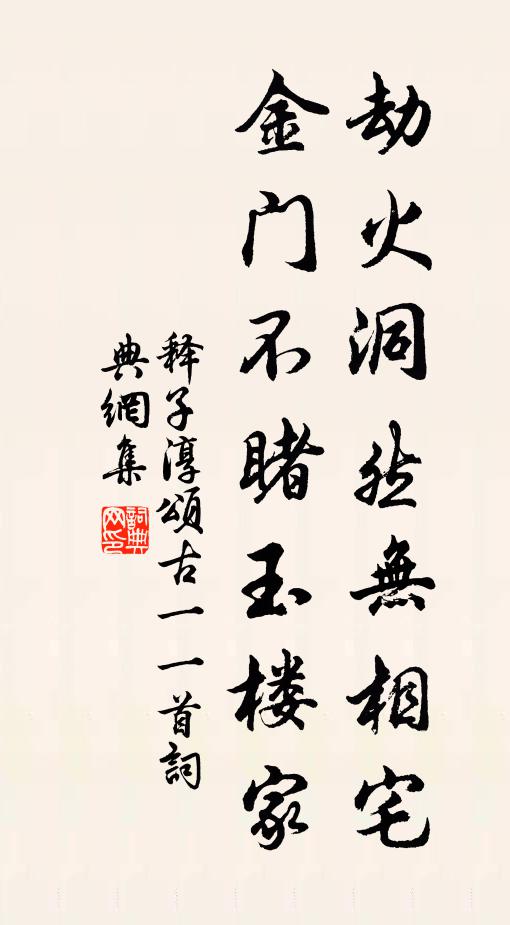 劫火洞然無相宅
金门不睹玉楼家
释子淳頌古一一首詞
典網集
詞典网印